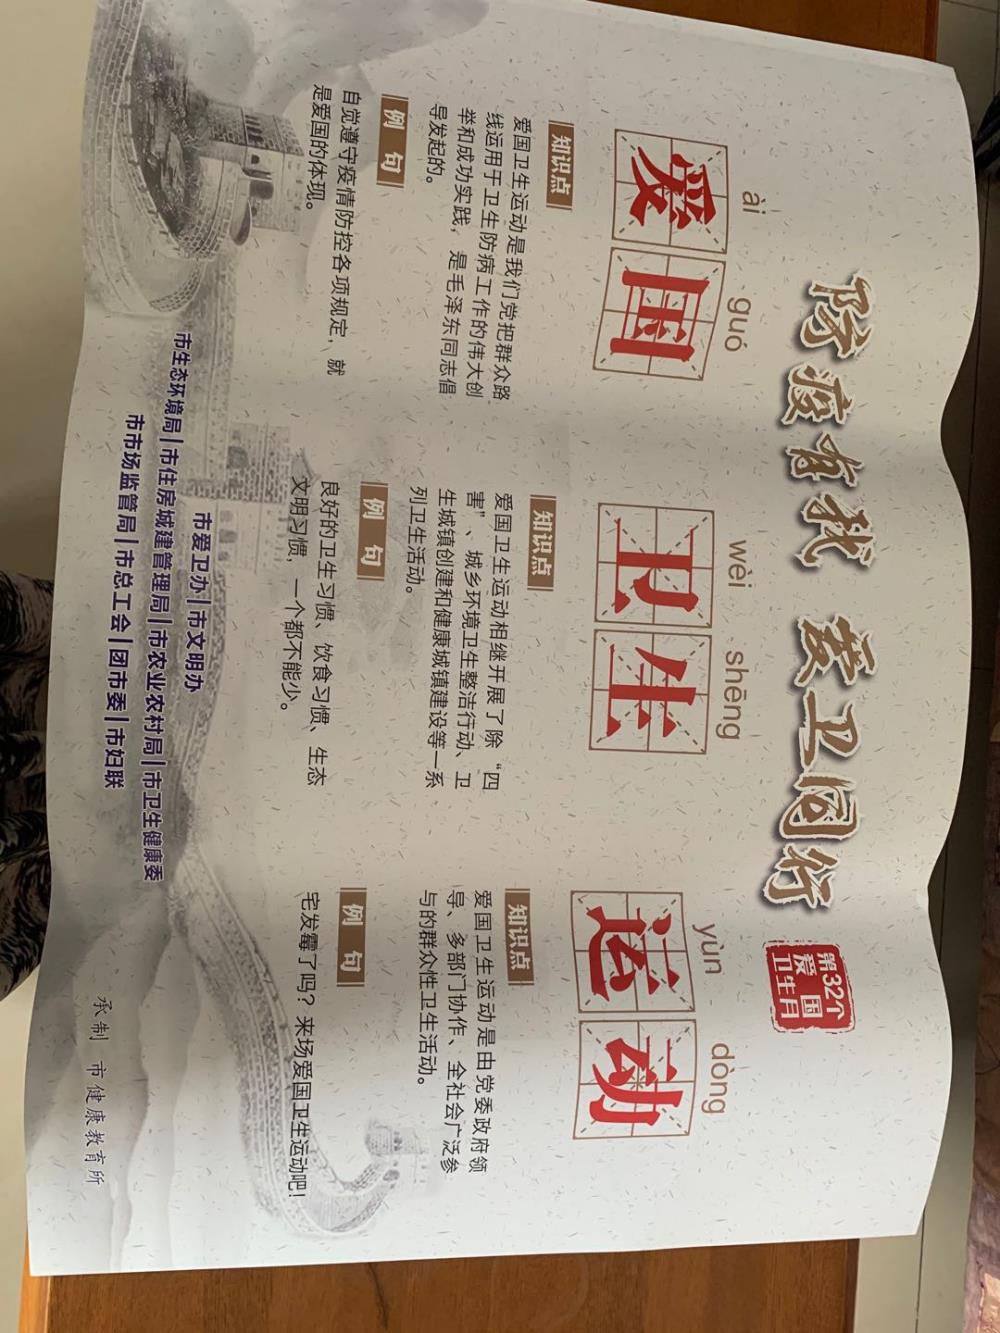 防疫有我 爱卫同行
第32个
爱国
卫生月
ài guó
爱国
知识点
爱国卫生运动是我们党把群众路
线运用于卫生防病工作的伟大创
举和成功实践，是毛泽东同志倡
导发起的。
例 句
自觉遵守疫情防控各项规定，就
是爱国的体现。
wèi shēng
卫生
知识点
爱国卫生运动相继开展了除“四
害”、城乡环境卫生整洁行动、卫
生城镇创建和健康城镇建设等一系
列卫生活动。
例 句
良好的卫生习惯、饮食习惯、生态
文明习惯，一个都不能少。
yùn dòng
运动
知识点
爱国卫生运动是由党委政府领
导、多部门协作、全社会广泛参
与的群众性卫生活动。
例 句
宅发霉了吗？来场爱国卫生运动吧！
市爱卫办|市文明办
市生态环境局|市住房城建管理局|市农业农村局|市卫生健康委
市市场监管局|市总工会|团市委|市妇联
承制 市健康教育所